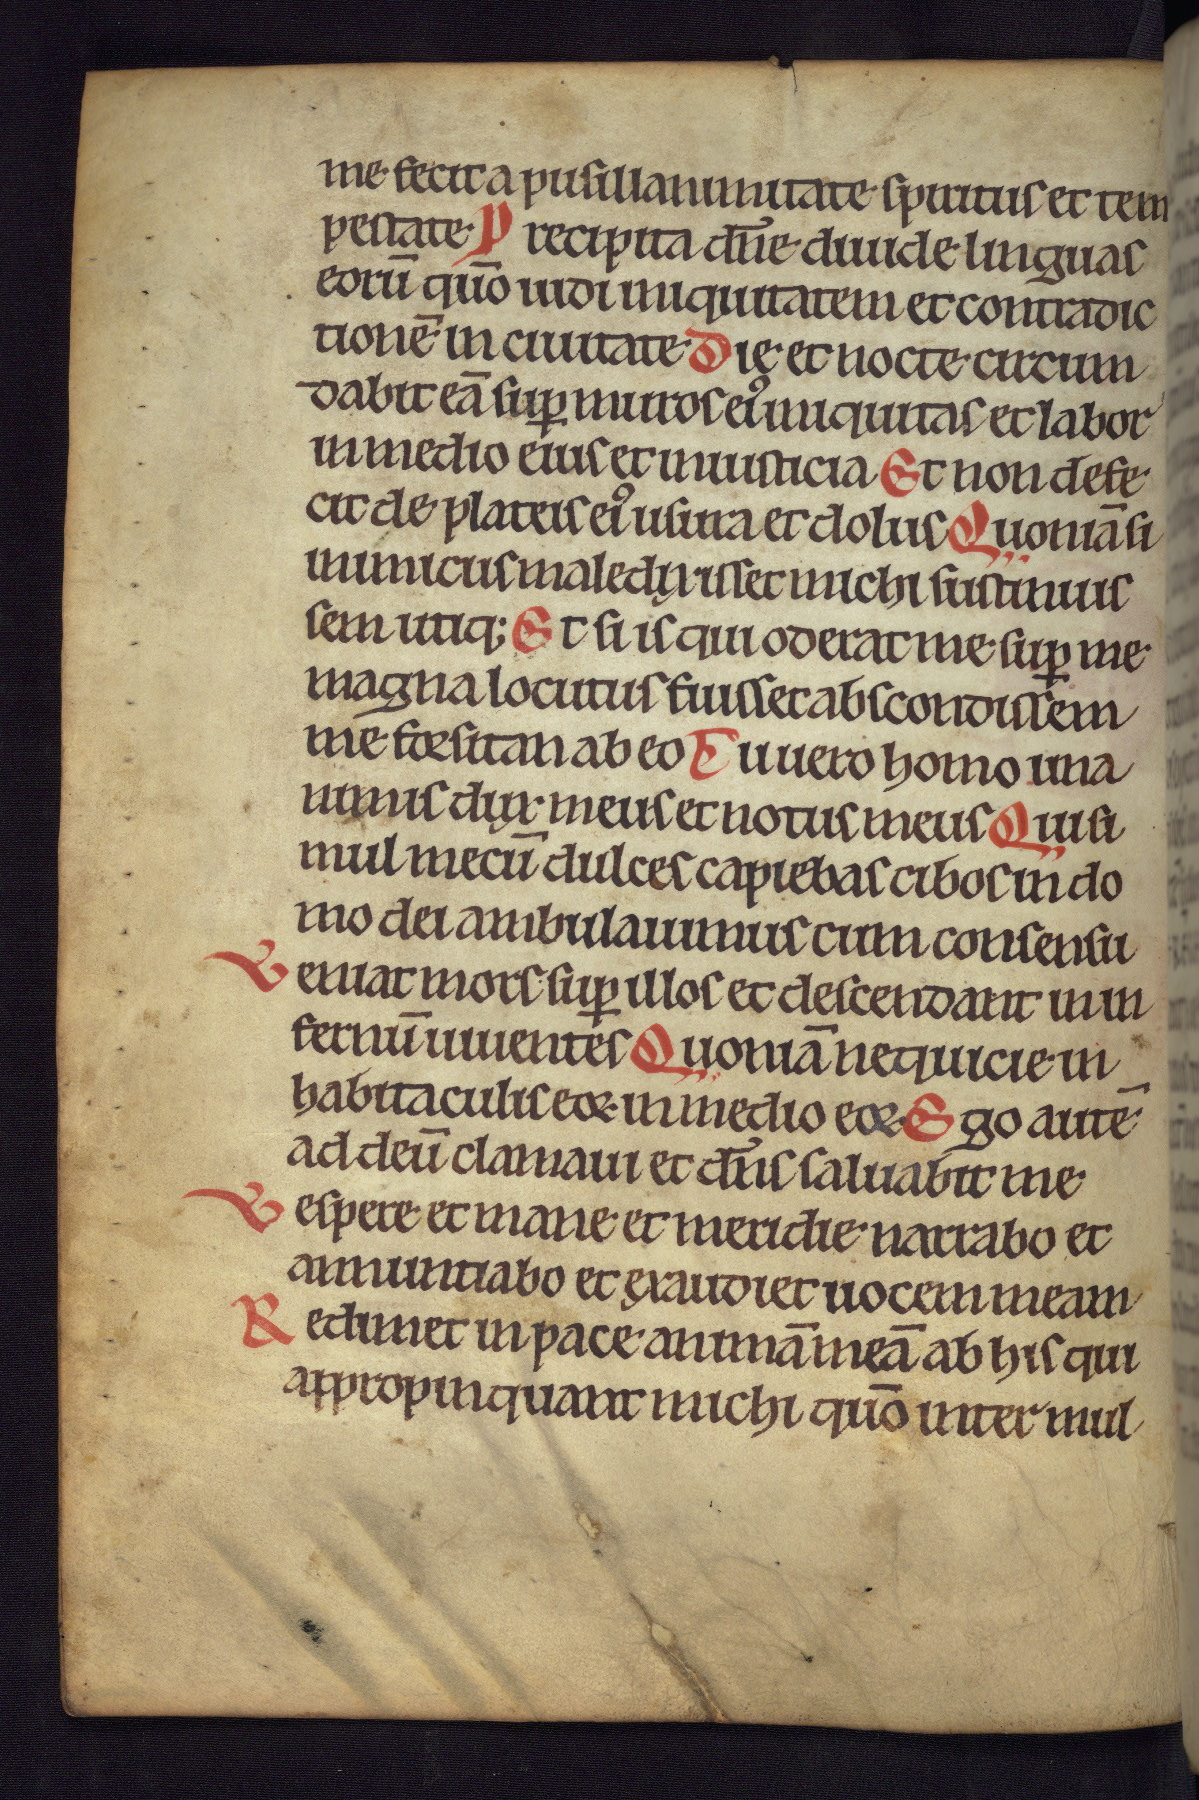 me fecit a pusillanimitate spiritus et tem
pestate Precipita dn̄e diuide linguas
eorū quō uidi iniquitatem et contradic
tionē in ciuitate Die et nocte circum
dabit eā suꝑ muros eiꝰ iniquitas et labor
in medio eius et iniusticia Et non defe
cit de plateis eiꝰ usura et dolus Quoniā si
inimicus maledixisset michi sustinuis
sem utiq; Et si is qui oderat me suꝑ me
magna locutus fuisset abscondissem
me forsitan ab eo Tu uero homo una
nimis dux meus et notus meus Qui si
mul mecū dulces capiebas cibos in do
mo dei ambulauimus cum consensu
Veniat mors suꝑ illos et descendant in in
fernū uiuentes Quoniā nequicie in
habitaculis eoꝝ in medio eoꝝ Ego autē
ad deū clamaui et dn̄s saluabit me
Vespere et mane et meridie narrabo et
annuntiabo et exaudiet uocem meam
Redimet in pace animā meā ab his qui
appropinquant michi quō inter mul